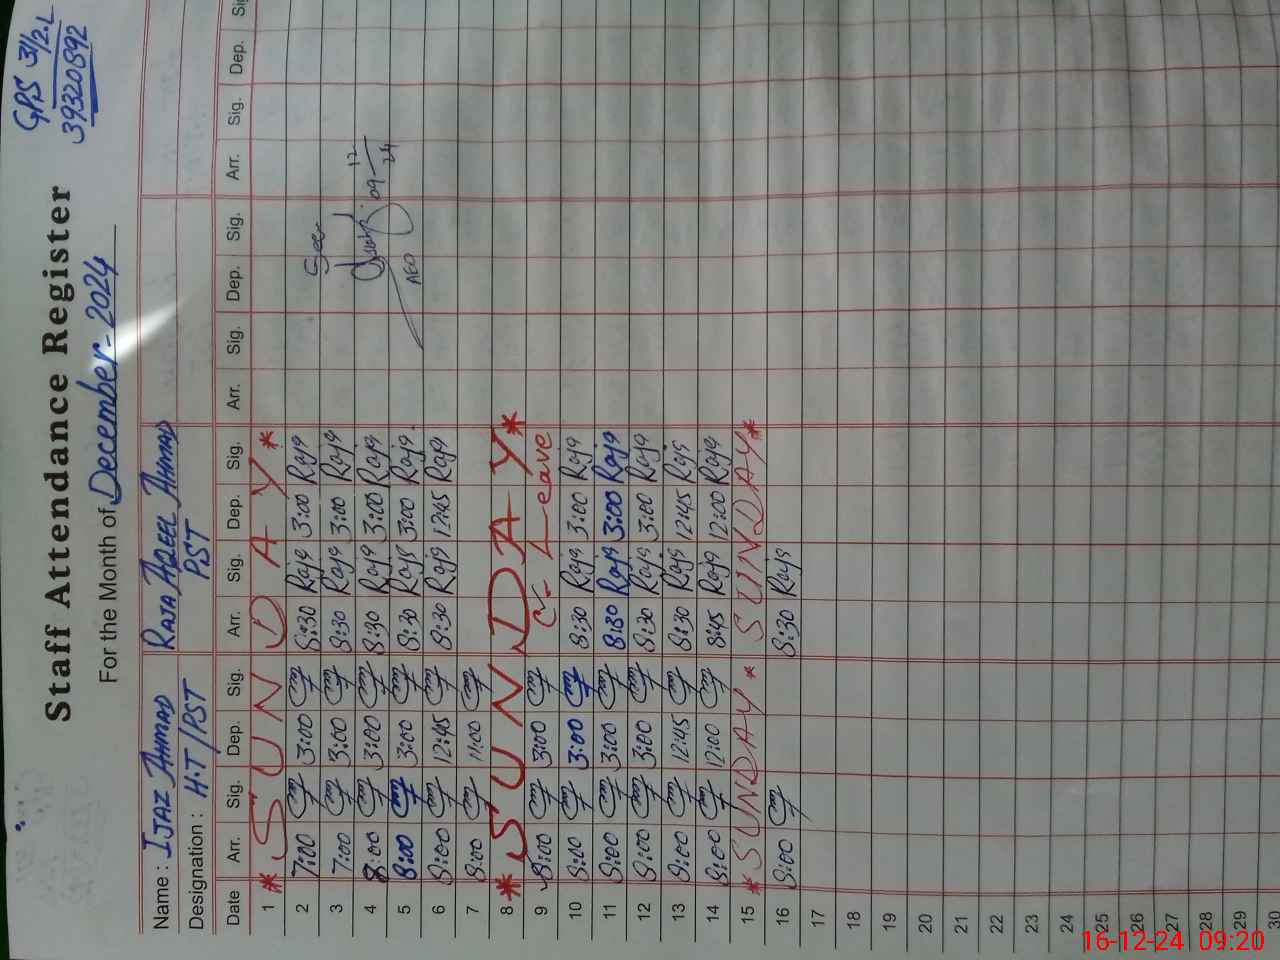 GPS 31/2.L
39320892
Staff Attendance Register
For the Month of December-2024
Name : IJAZ AHMAD RAJA AQEEL AHMAD
Designation : H.T/PST PST
Date Arr. Sig. Dep. Sig. Arr. Sig. Dep. Sig. Arr. Sig. Dep. Sig. Arr. Sig. Dep. Sig.
1 * SUNDAY *
2 7:00 3:00 8:30 Raja 3:00 Raja
3 7:00 3:00 8:30 Raja 3:00 Raja
4 8:00 3:00 8:30 Raja 3:00 Raja
5 8:00 3:00 8:30 Raja 3:00 Raja
6 8:00 12:45 8:30 Raja 12:45 Raja
7 8:00 11:00
8 * SUNDAY *
9 8:00 3:00 Leave
10 8:00 3:00 8:30 Raja 3:00 Raja
11 8:00 3:00 8:30 Raja 3:00 Raja
12 8:00 3:00 8:30 Raja 3:00 Raja
13 8:00 12:45 8:30 Raja 12:45 Raja
14 8:00 12:00 8:45 Raja 12:00 Raja
15 * SUNDAY * SUNDAY *
16 8:00 8:30 Raja
17
18
19
20
21
22
23
24
25
26
27
28
29
30
09-12-24
AEO
16-12-24 09:20